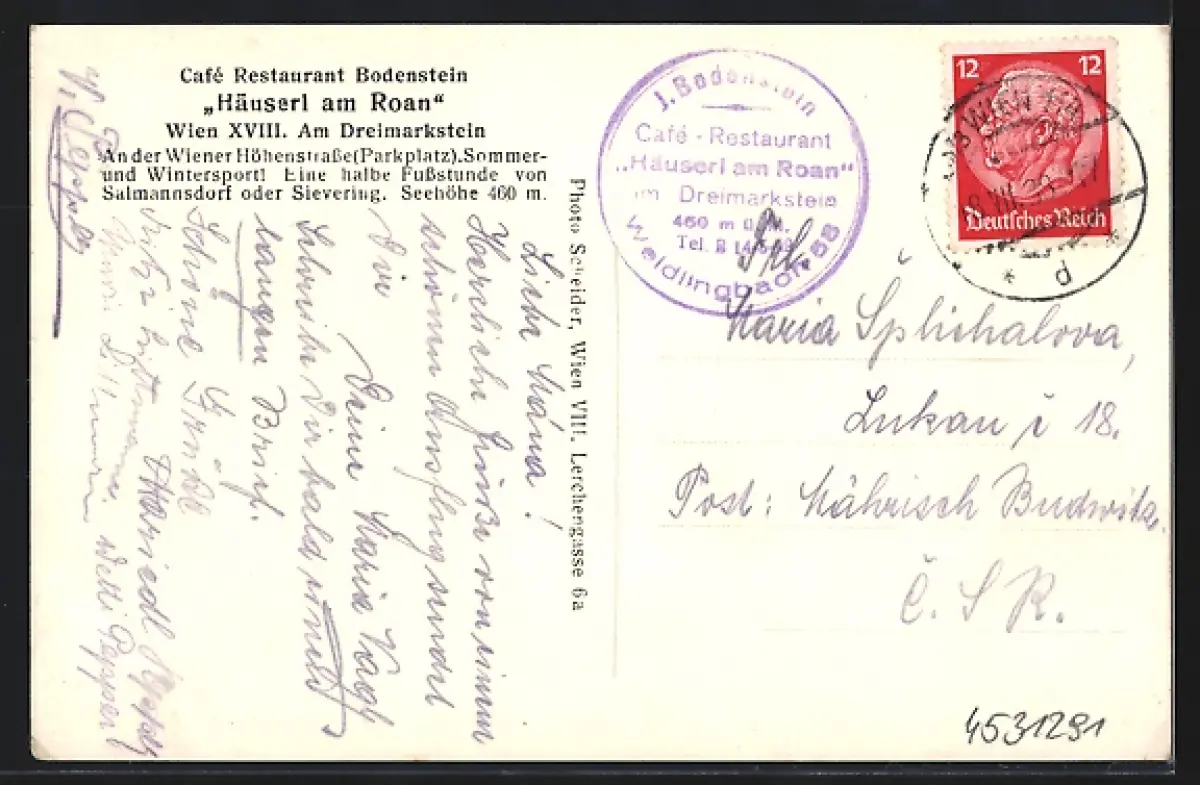 Café Restaurant Bodenstein
„Häuserl am Roan“
Wien XVIII. Am Dreimarkstein
An der Wiener Höhenstraße (Parkplatz). Sommer-
und Wintersport! Eine halbe Fußstunde von
Salmannsdorf oder Sievering. Seehöhe 460 m.
Liebe Máňa!
Herzliche Grüße von einem
schönen Ausflug sendet
Dir
Deine Maria Vogl
Schreibe Dir bald einen
langen Brief.
Schöne Grüße
Photo Scheider, Wien VIII. Lerchengasse 6a
J. Bodenstein
Café - Restaurant
„Häuserl am Roan“
im Dreimarkstein
460 m ü. M.
Tel.
Weidlingbach 58
12 12
Deutsches Reich
WIEN
* d *
Frl.
Maria Šplíchalova,
Lukau č 18.
Post: Mährisch Budwitz.
Č. S R.
4531291